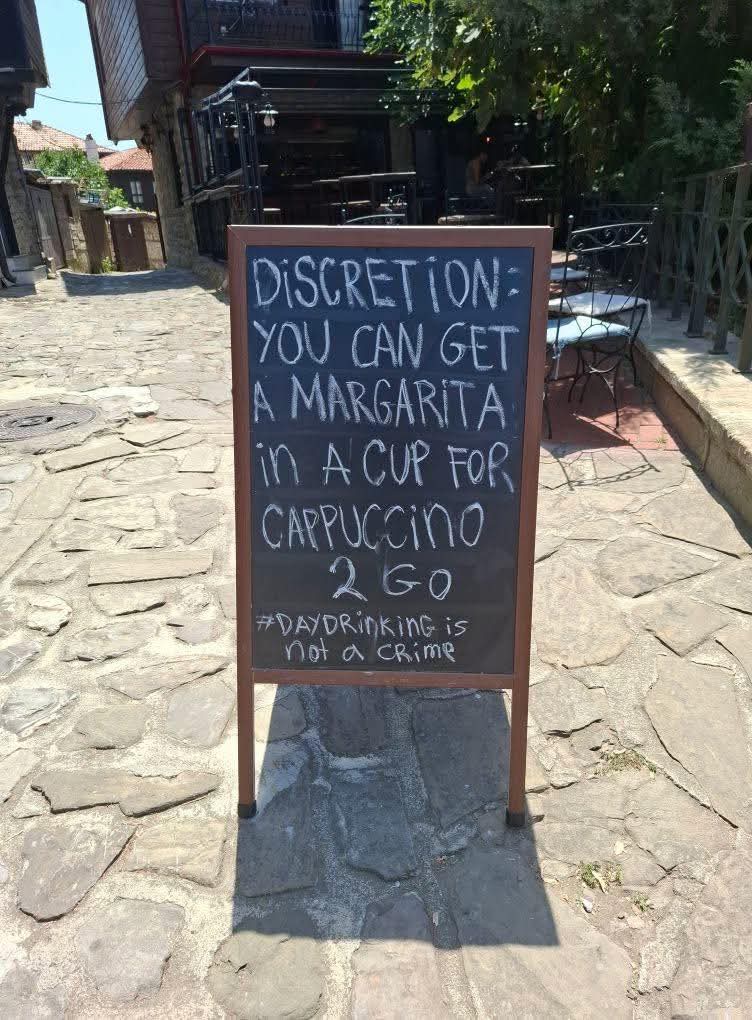 DiSCRETiON:
YOU CAN GET
A MARGARiTA
in A CUP FOR
CAPPUCCinO
2 GO
#DAYDRinKinG is
not a CRimE